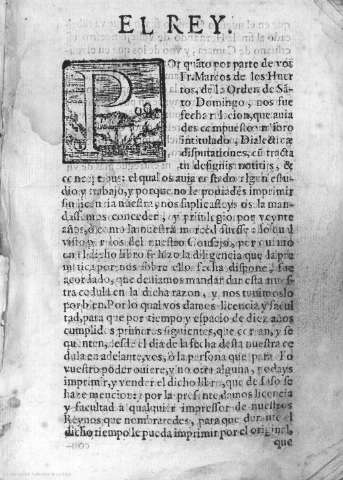 EL REY.
POr quãto por parte de vos
Fr. Marcos de los Hue
ros, de la Orden de Sã
to Domingo, nos fue
fecha relacion, que auia
des compuesto vn libro
intitulado, Dialecticæ
disputationes, cũ tracta
tu de signis notitijs, &
el qual os auia costado algun estu
dio y trabajo, y porque no le podiades imprimir
sin licencia nuestra, nos suplicasteys os la man
dassemos conceder, y priuilegio por veynte
años, o como la nuestra merced fuesse. Lo qual
visto por los del nuestro Consejo, por quanto
en el dicho libro se hizo la diligencia que la pre
matica por nos sobre ello fecha dispone, fue
acordado, que deuiamos mandar dar esta nues
tra cedula en la dicha razon, y nos tuuimoslo
por bien. Por lo qual vos damos licencia, y facul
tad, para que por tiempo y espacio de diez años
cumplidos primeros siguientes, que corran, y se
quenten, desde el dia de la fecha desta nuestra ce
dula en adelante, vos, ò la persona que para ello
vuestro poder ouiere, y no otra alguna, podays
imprimir, y vender el dicho libro, que de suso se
haze mencion: y por la presente damos licencia
y facultad a qualquier impressor de nuestros
Reynos que nombraredes, para que durante el
dicho tiempo le pueda imprimir por el original,
que